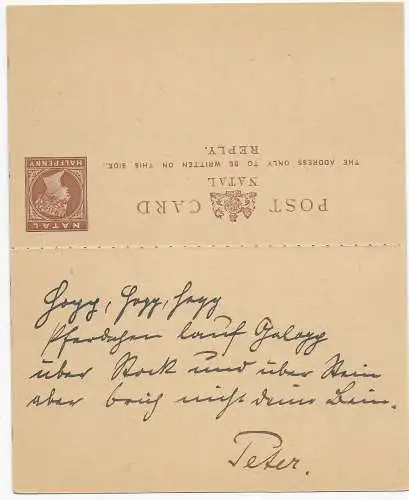 POST CARD
NATAL
THE ADDRESS ONLY TO BE WRITTEN ON THIS SIDE.
REPLY.
NATAL
HALFPENNY
Hopp, hopp, hopp
Pferdchen lauf Galopp
über Stock und über Stein
aber brich nicht deine Bein.
Peter.